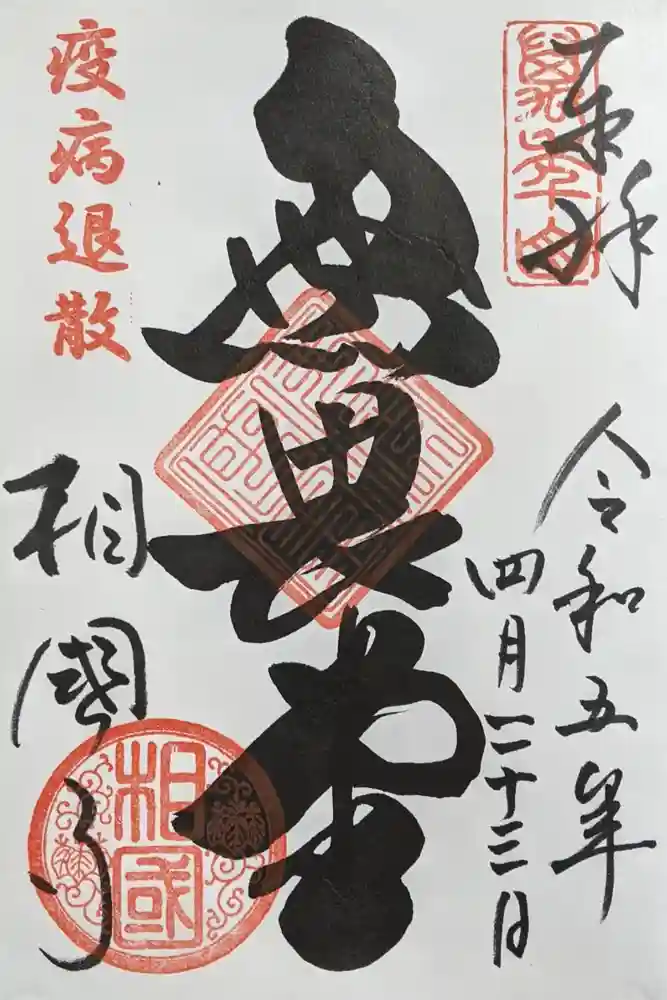 奉拝
令和五年
四月二十三日
無畏堂
疫病退散
相國寺
相國